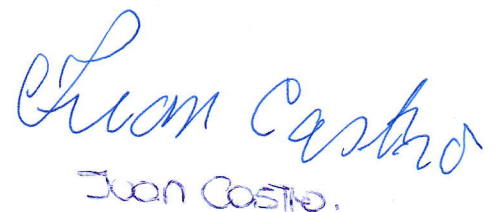 Juan Castro
Juan Castro.